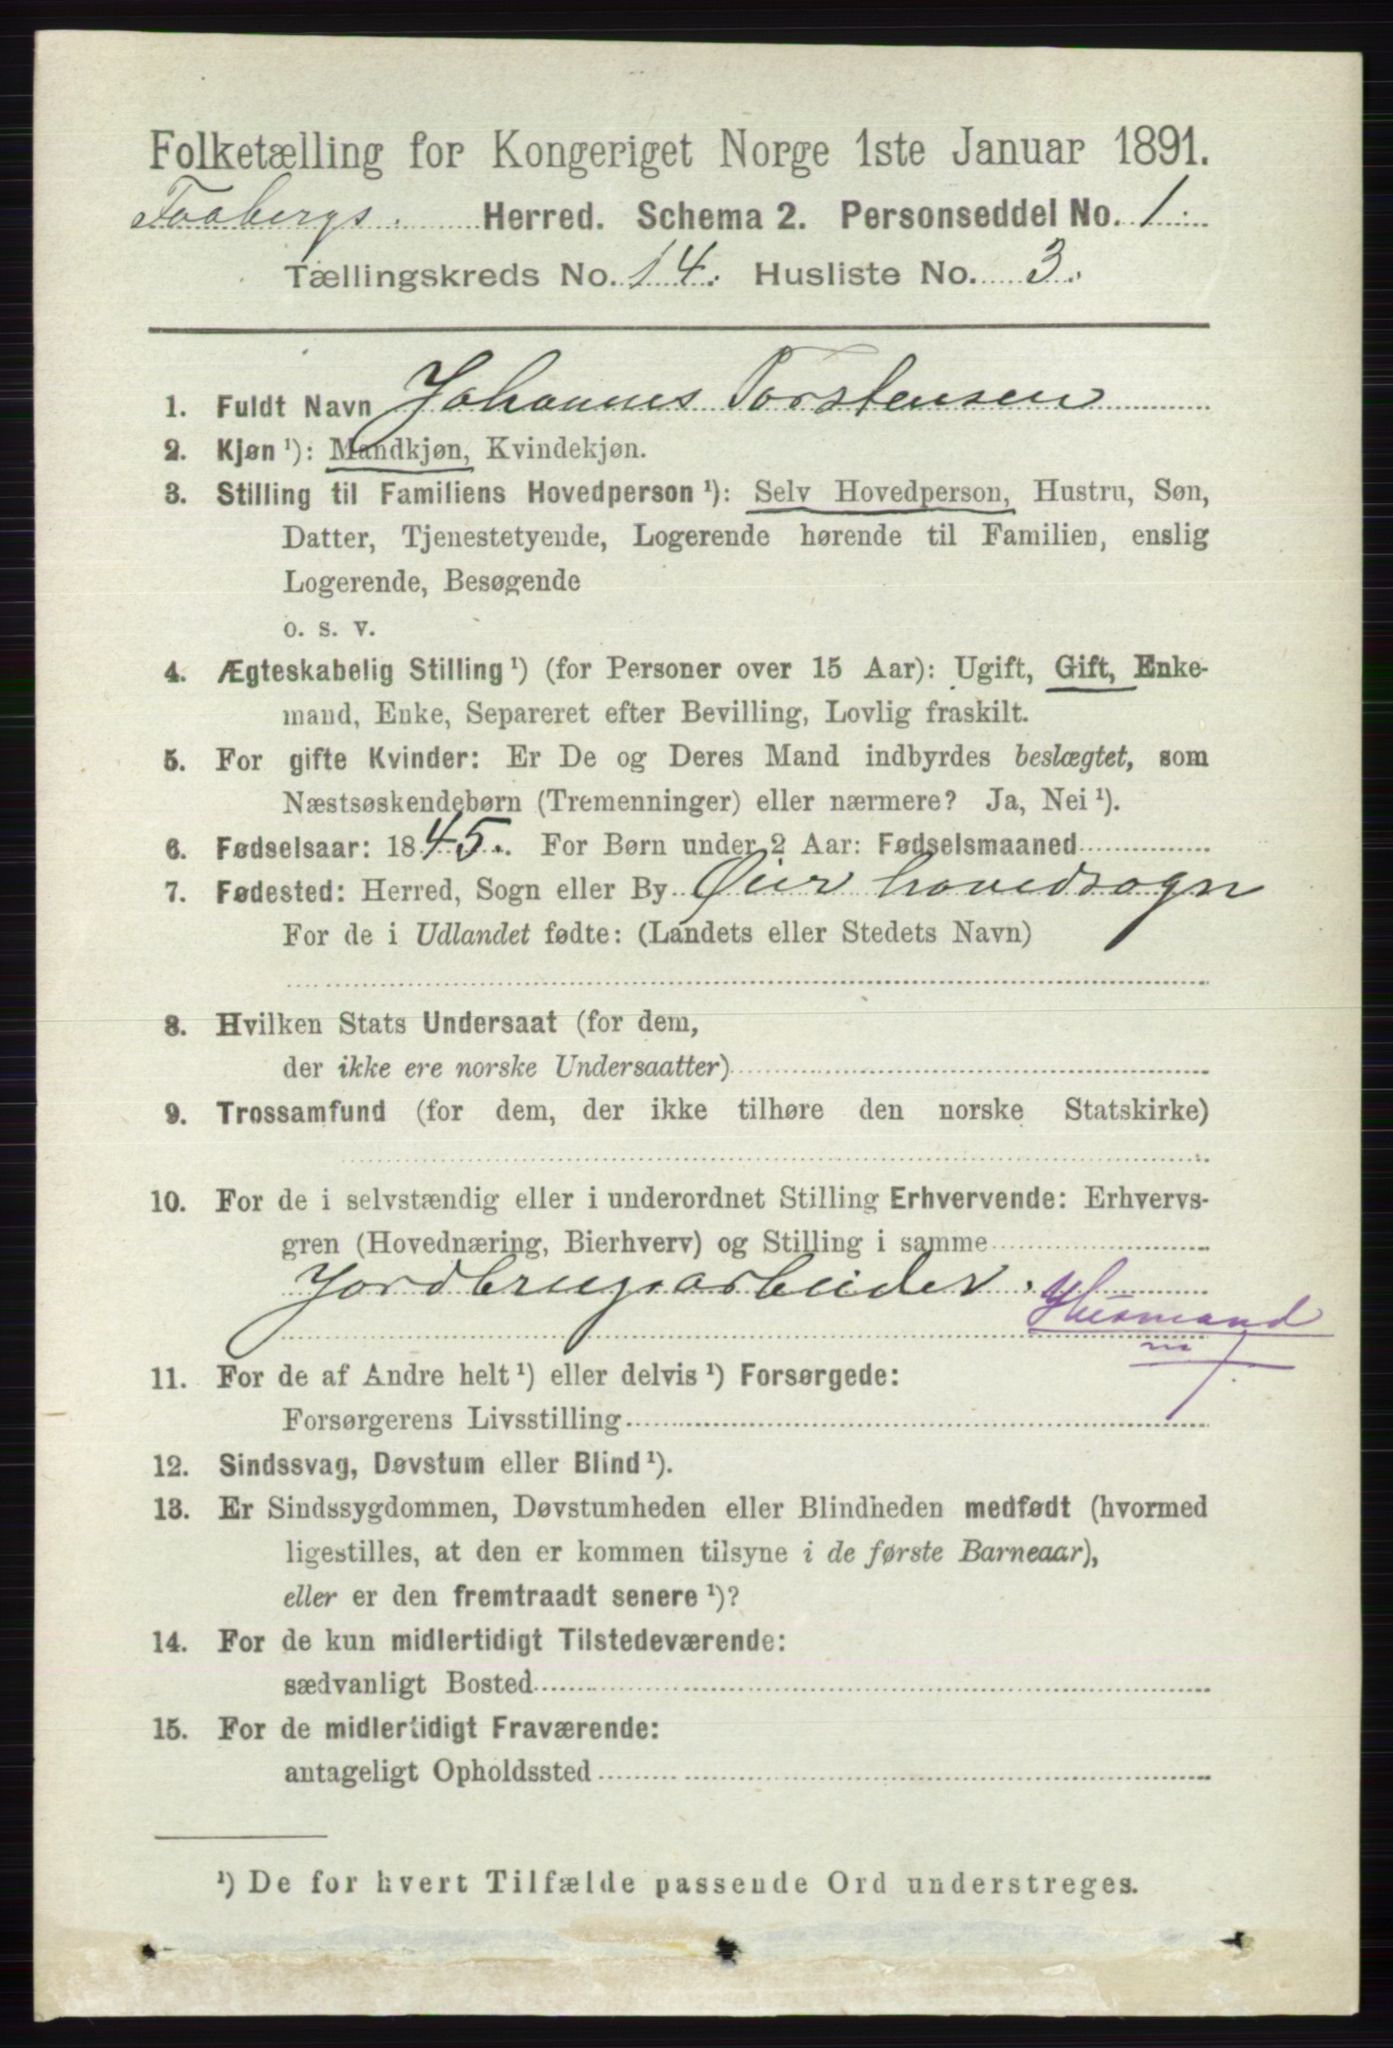 Folketælling for Kongeriget Norge 1ste Januar 1891.
Faabergs. Herred. Schema 2. Personseddel No. 1.
Tællingskreds No. 14. Husliste No. 3.
1. Fuldt Navn Johannes Torstensen
2. Kjøn ¹): Mandkjøn, Kvindekjøn.
3. Stilling til Familiens Hovedperson ¹): Selv Hovedperson, Hustru, Søn,
Datter, Tjenestetyende, Logerende hørende til Familien, enslig
Logerende, Besøgende
o. s. v.
4. Ægteskabelig Stilling ¹) (for Personer over 15 Aar): Ugift, Gift, Enke-
mand, Enke, Separeret efter Bevilling, Lovlig fraskilt.
5. For gifte Kvinder: Er De og Deres Mand indbyrdes beslægtet, som
Næstsøskendebørn (Tremenninger) eller nærmere? Ja, Nei ¹).
6. Fødselsaar: 1845. For Børn under 2 Aar: Fødselsmaaned
7. Fødested: Herred, Sogn eller By Øier hovedsogn
For de i Udlandet fødte: (Landets eller Stedets Navn)
8. Hvilken Stats Undersaat (for dem,
der ikke ere norske Undersaatter)
9. Trossamfund (for dem, der ikke tilhøre den norske Statskirke)
10. For de i selvstændig eller i underordnet Stilling Erhvervende: Erhvervs-
gren (Hovednæring, Bierhverv) og Stilling i samme
Jordbrugsarbeider. Husmand
m/
11. For de af Andre helt ¹) eller delvis ¹) Forsørgede:
Forsørgerens Livsstilling
12. Sindssvag, Døvstum eller Blind ¹).
13. Er Sindssygdommen, Døvstumheden eller Blindheden medfødt (hvormed
ligestilles, at den er kommen tilsyne i de første Barneaar),
eller er den fremtraadt senere ¹)?
14. For de kun midlertidigt Tilstedeværende:
sædvanligt Bosted
15. For de midlertidigt Fraværende:
antageligt Opholdssted
¹) De for hvert Tilfælde passende Ord understreges.